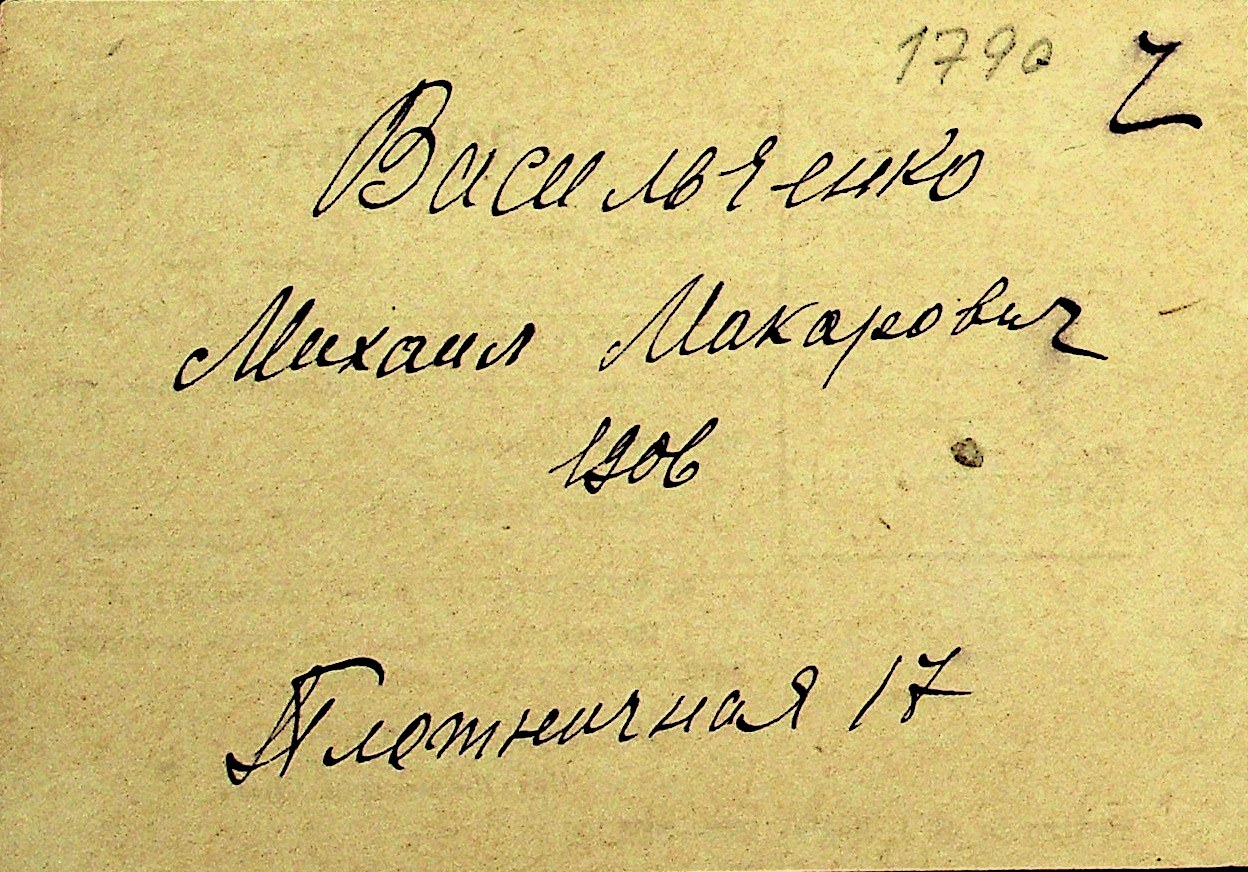 1790
Васильченко
Михаил Макарович
1906
Плотничная 17